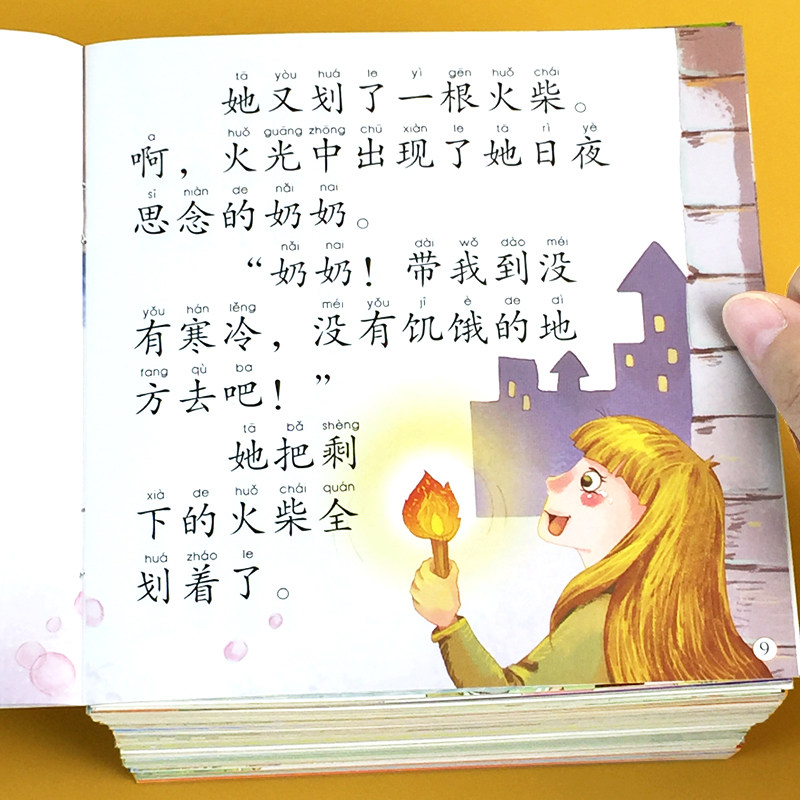 tā yòu huá le yì gēn huǒ chái
她又划了一根火柴。
a huǒ guāng zhōng chū xiàn le tā rì yè
啊，火光中出现了她日夜
sī niàn de nǎi nai
思念的奶奶。
nǎi nai dài wǒ dào méi
“奶奶！带我到没
yǒu hán lěng méi yǒu jī è de dì
有寒冷，没有饥饿的地
fang qù ba
方去吧！”
tā bǎ shèng
她把剩
xià de huǒ chái quán
下的火柴全
huá zháo le
划着了。
9